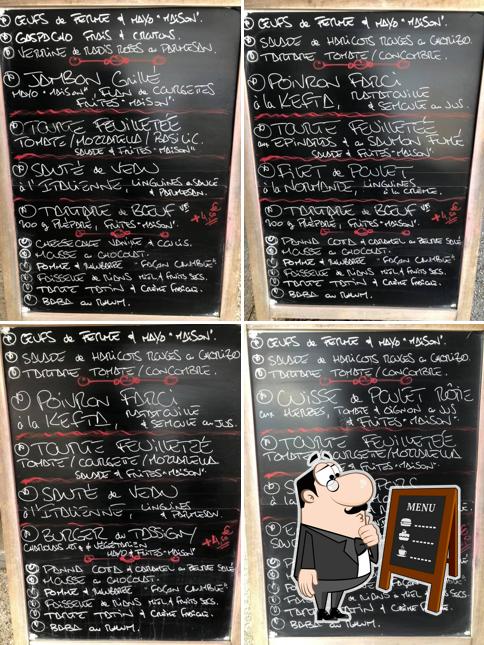 OEUFS de FERME & MAYO "MAISON".
GASPACHO FRAIS & CROUTONS.
VERRINE de RADIS ROSES au PARMESAN.
JAMBON GRILLÉ
MAYO "MAISON", FLAN de COURGETTES
FRITES "MAISON".
TOURTE FEUILLETÉE
TOMATE/MOZZARELLA/BASILIC.
SALADE & FRITES "MAISON".
SAUTÉ de VEAU
à l'ITALIENNE, LINGUINES
& PARMESAN.
TARTARE de BOEUF VBF
200 g PRÉPARÉ, FRITES "MAISON".
CHEESECAKE VANILLE & COULIS.
MOUSSE au CHOCOLAT.
POMME & RHUBARBE "FAÇON CRUMBLE"
FAISSELLE de RIANS MIEL & FRUITS SECS.
TARTE TATIN & CRÈME FRAÎCHE.
BABA au RHUM.
OEUFS de FERME & MAYO "MAISON".
SALADE de HARICOTS ROUGES au CHORIZO.
TARTARE TOMATE/CONCOMBRE.
POIVRON FARCI
à la KEFTA, RATATOUILLE
& SEMOULE au JUS.
TOURTE FEUILLETÉE
aux EPINARDS & au SAUMON FUMÉ
SALADE & FRITES "MAISON".
FILET de POULET
à la NORMANDE, LINGUINES
à la CRÈME.
TARTARE de BOEUF VBF
200 g PRÉPARÉ, FRITES "MAISON".
PANNA COTTA & CARAMEL au BEURRE SALÉ
MOUSSE au CHOCOLAT.
POMME & RHUBARBE "FAÇON CRUMBLE"
FAISSELLE de RIANS MIEL & FRUITS SECS.
TARTE TATIN & CRÈME FRAÎCHE.
BABA au RHUM.
OEUFS de FERME & MAYO "MAISON".
SALADE de HARICOTS ROUGES au CHORIZO
TARTARE TOMATE/CONCOMBRE.
POIVRON FARCI
à la KEFTA, RATATOUILLE
& SEMOULE au JUS.
TOURTE FEUILLETÉE
TOMATE/COURGETTE/MOZZARELLA
SALADE & FRITES "MAISON"
SAUTÉ de VEAU
à l'ITALIENNE, LINGUINES
& PARMESAN.
BURGER au
MAYO & FRITES "MAISON"
PANNA COTTA & CARAMEL au BEURRE SALÉ
MOUSSE au CHOCOLAT.
POMME & RHUBARBE "FAÇON CRUMBLE"
FAISSELLE de RIANS MIEL & FRUITS SECS.
TARTE TATIN & CRÈME FRAÎCHE.
BABA au RHUM.
OEUFS de FERME & MAYO "MAISON".
SALADE de HARICOTS ROUGES au CHORIZO.
TARTARE TOMATE/CONCOMBRE.
CUISSE de POULET RÔTIE
aux HERBES, TOMATE & OIGNON au JUS
& FRITES "MAISON".
TOURTE FEUILLETÉE
FRITES "MAISON".
MENU
BABA au RHUM.